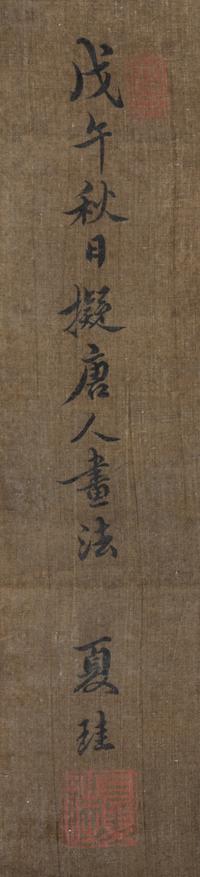 戊午秋日擬唐人畫法 夏珪